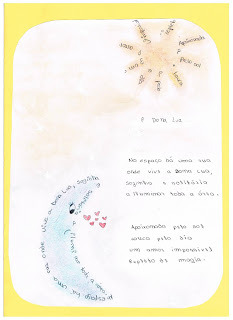 A Dona Lua
No espaço há uma rua
onde vive a Dona Lua,
sozinha e solitária
a iluminar toda a área.
Apaixonada pelo sol
louca pelo dia
um amor impossível
repleto de magia.
Apaixonada
pelo sol
louca
No espaço há uma rua onde vive a Dona Lua, sozinha
e
a iluminar toda a área